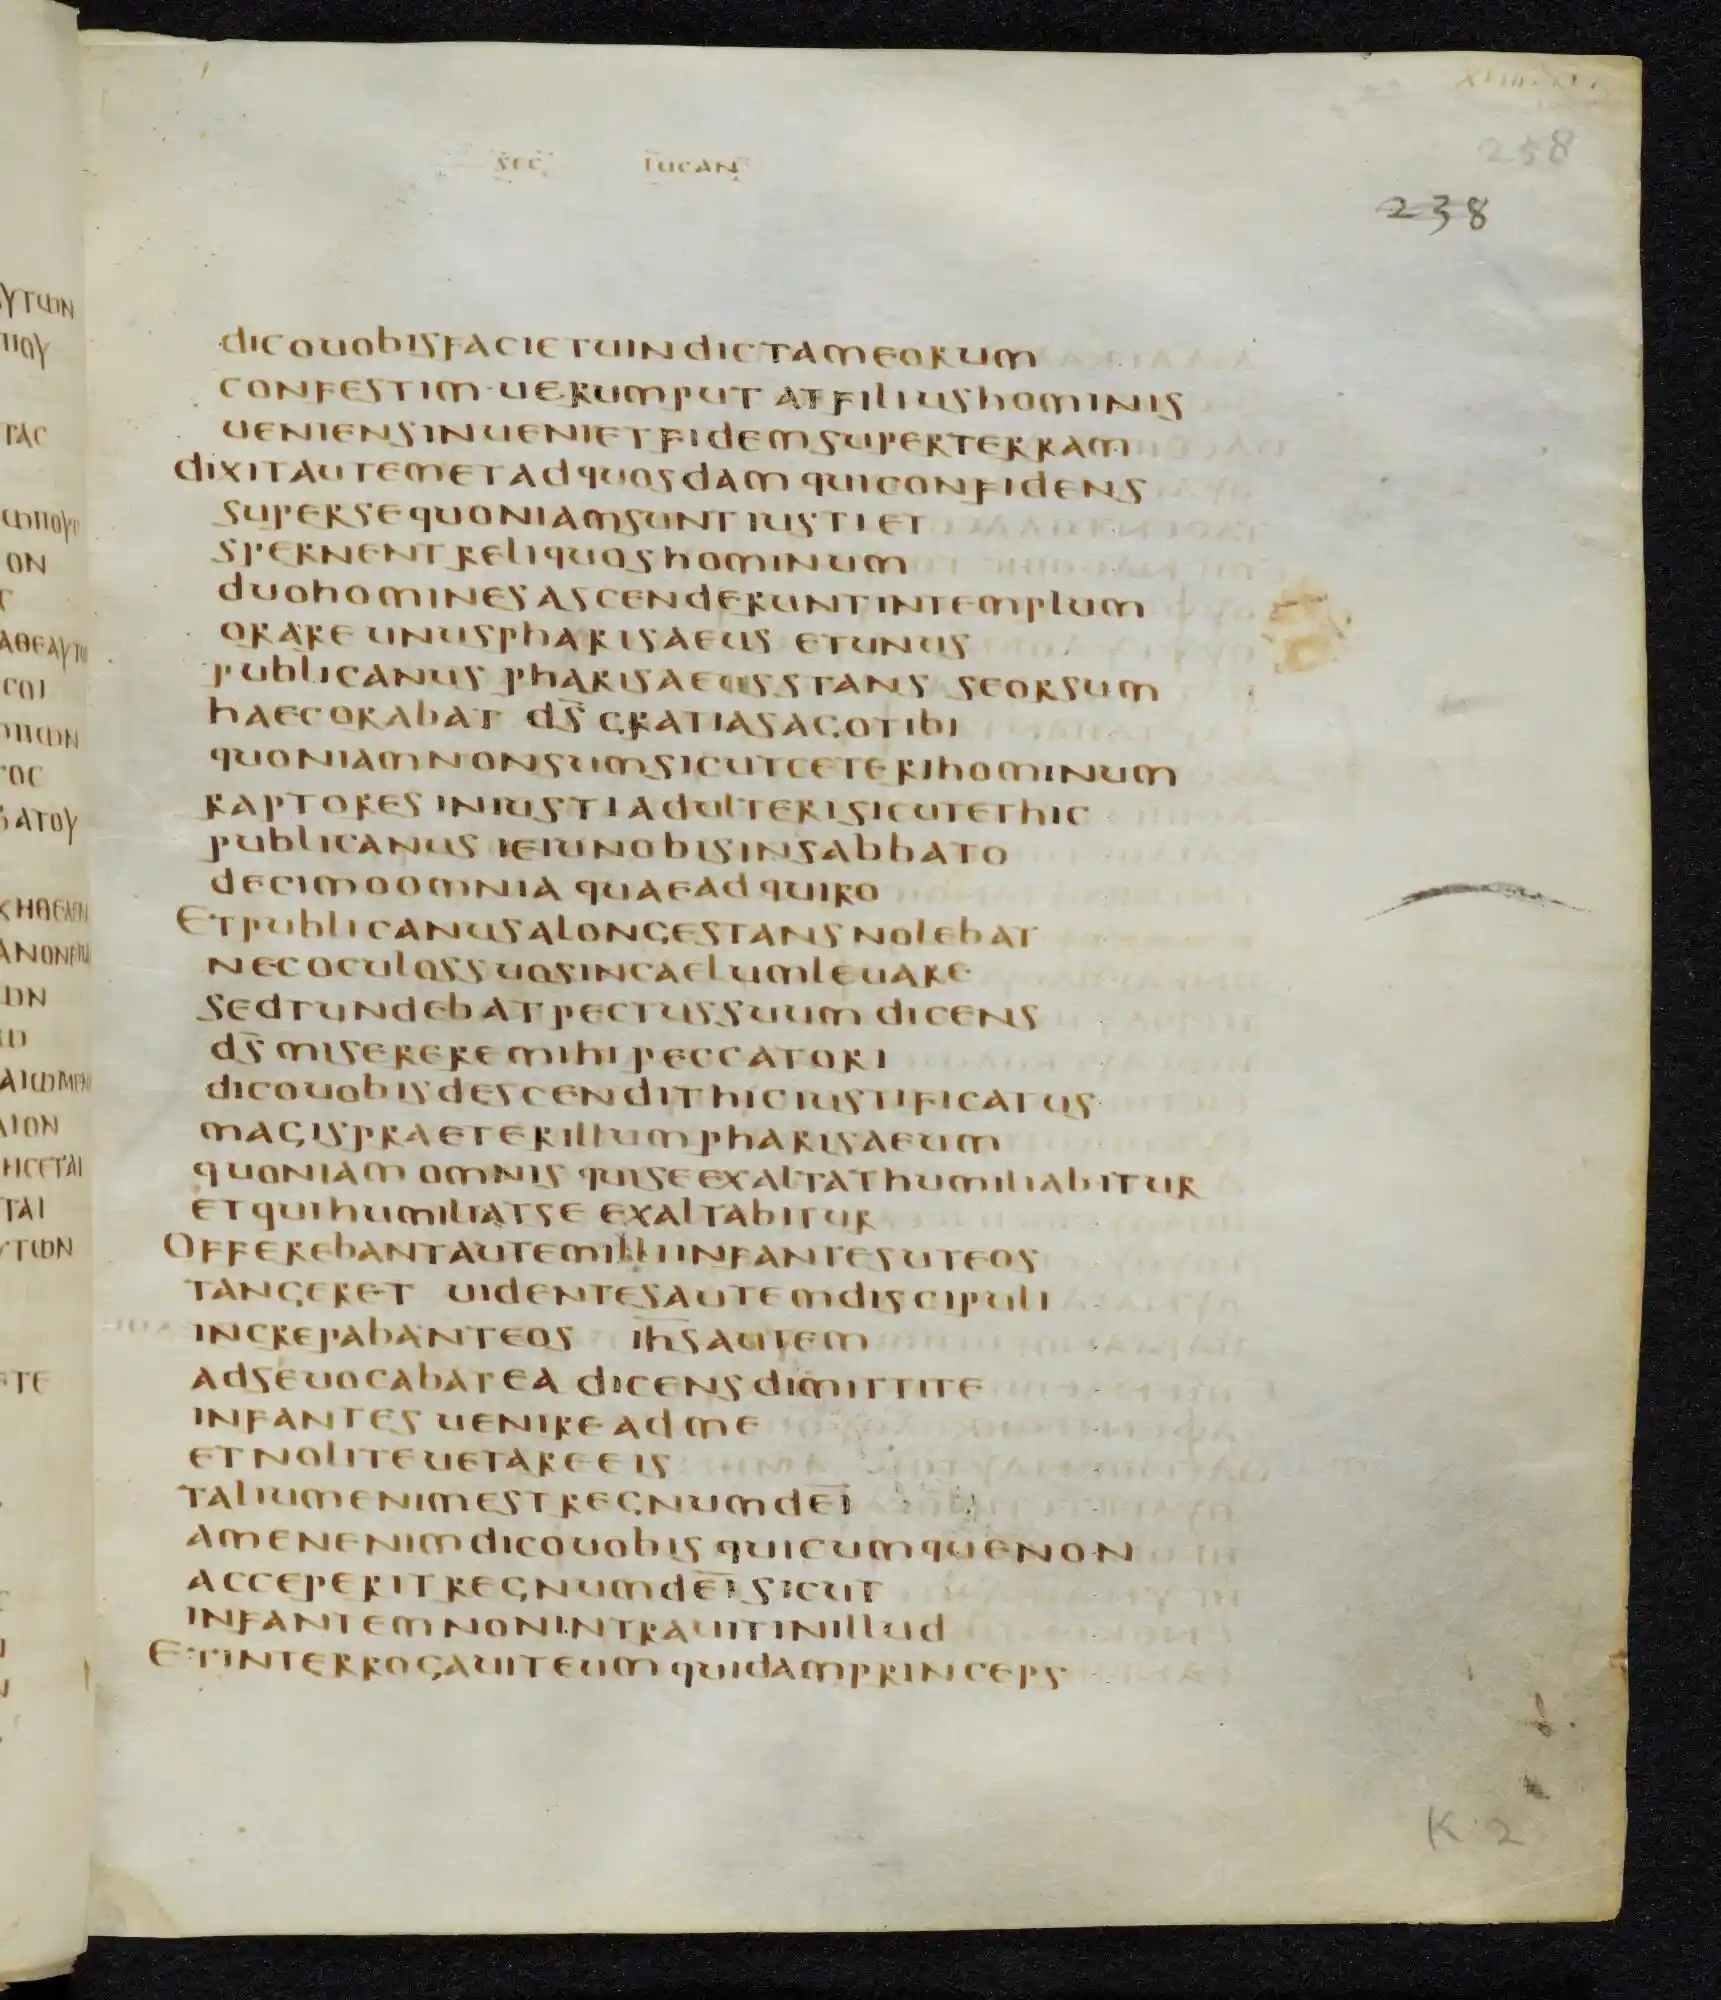 sec lucan
258
238
dicouobisfacietuindictameorum
confestim·uerumputatfiliushominis
ueniensinuenietfidemsuperterram
dixitautemetadquosdam quiconfidens
superse quoniamsuntiustiet
spernentreliquoshominum
duohominesascenderuntintemplum
orare unuspharisaeus etunus
publicanus pharisaeusstans seorsum
haecorabat ds̄ gratiasagotibi
quoniamnonsumsicutceterihominum
raptores iniustiadulterisicutethic
publicanus ieiunobisinsabbato
decimoomnia quaeadquiro
Etpublicanusalongestans nolebat
necoculossuosincaelumleuare
sedtundebatpectussuum dicens
ds̄ misereremihipeccatori
dicouobisdescendithiciustificatus
magispraeterillumpharisaeum
quoniam omnis quiseexaltathumiliabitur
etquihumiliatse exaltabitur
Offerebantautemilliinfantesuteos
tangeret uidentesautemdiscipuli
increpabanteos ih̄sautem
adseuocabatea dicensdimittite
infantes uenireadme
etnoliteuetareeis
taliumenimestregnumdeī
amenenimdicouobis quicumquenon
acceperitregnumdeīsicut
infantemnonintrauitinillud
Etinterrogauiteum quidamprinceps
K 2
υτων
που
τας
ωπου
ον
αθεαυτω
σοι
οπων
τος
βατου
ων
αιον
ησεται
ται
υτων
ετε